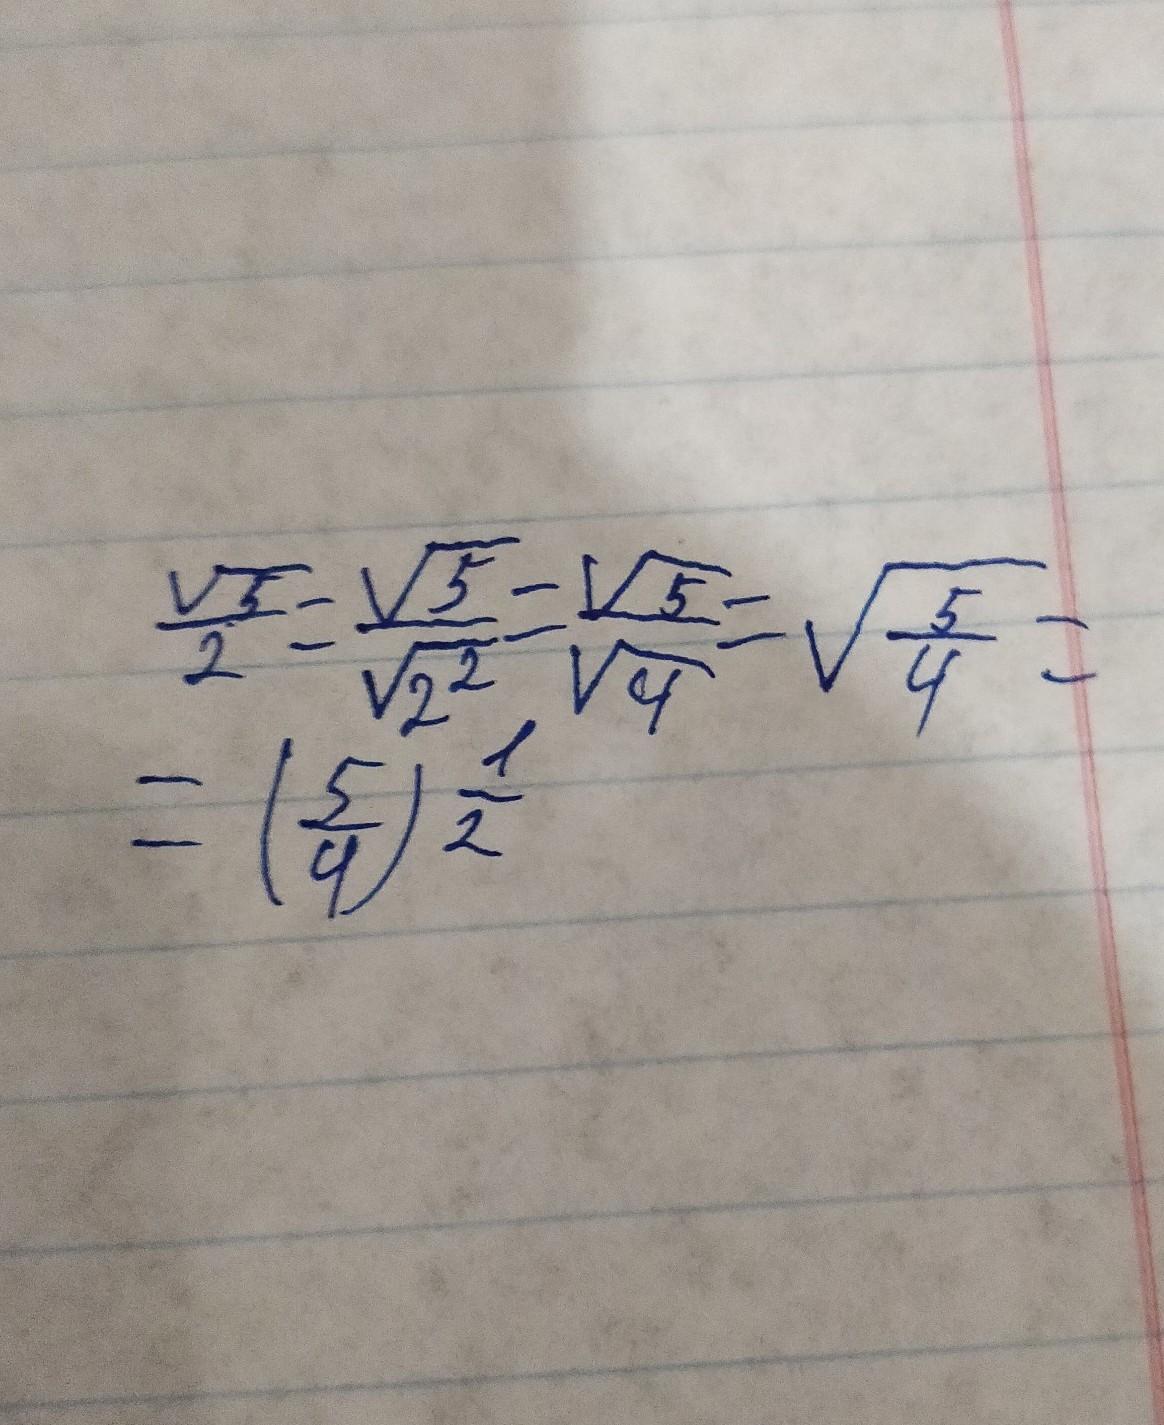 √5/2 = √5/√2² = √5/√4 = √(5/4) =
= (5/4)^(1/2)